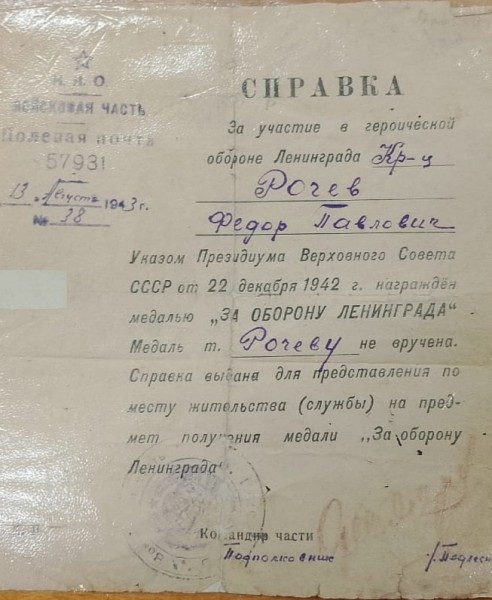 Н.К.О.
ВОЙСКОВАЯ ЧАСТЬ
Полевая почта
57931
13 Августа 1943 г.
№ 38
СПРАВКА
За участие в героической
обороне Ленинграда Кр-ц
Рочев
Федор Павлович
Указом Президиума Верховного Совета
СССР от 22 декабря 1942 г. награждён
медалью „ЗА ОБОРОНУ ЛЕНИНГРАДА"
Медаль т. Рочеву не вручена.
Справка выдана для представления по
месту жительства (службы) на пред-
мет получения медали „За оборону
Ленинграда"
Командир части
Подполковник